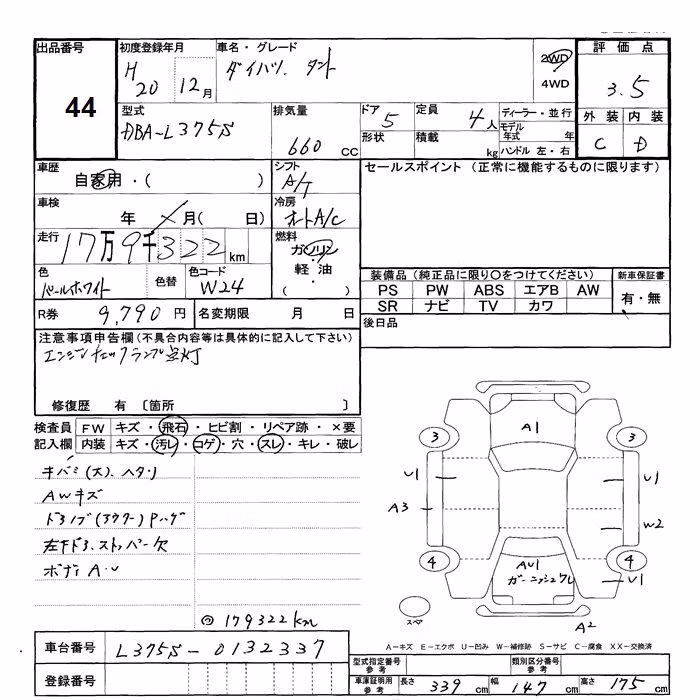 出品番号 初度登録年月 車名・グレード 2WD 4WD 評価点
44 H 20 12月 ダイハツ. タント 3.5
型式 DBA-L375S 排気量 660 CC ドア 5 形状 定員 4人 積載 kg ディーラー・並行 モデル年式 年 ハンドル 左・右 外装 内装
C D
車歴 自家用・( ) シフト A/T セールスポイント (正常に機能するものに限ります)
車検 年 月( 日) 冷房 オートA/C
走行 17万9千322km 燃料 ガソリン・軽油・( )
装備品 (純正品に限り○をつけてください) 新車保証書
色 パールホワイト 色替 色コード W24
PS PW ABS エアB AW 有・無
SR ナビ TV カワ
R券 9,790 円 名変期限 月 日
後日品
注意事項申告欄 (不具合内容等は具体的に記入して下さい)
エンジンチェックランプ点灯
修復歴 有 〔箇所 〕
検査員 FW キズ・飛石・ヒビ割・リペア跡・×要
記入欄 内装 キズ・汚レ・コゲ・穴・スレ・キレ・破レ
キバミ(大).ヘタリ
AWキズ
ドアノブ(アウター)Pハゲ
左下ドア.ストッパー欠
ボディA.U
◎179322km
A1
3 3
U1 U1
A3 W2
4 4
AU1 U1
ガーニッシュワレ
スペア A2
A-キズ E-エクボ U-凹み W-補修跡 S-サビ C-腐食 XX-交換済
車台番号 L375S-0132337
型式指定番号 参考 類別区分番号 参考
登録番号
車庫証明用 参考 長さ 339cm 幅 147cm 高さ 175cm